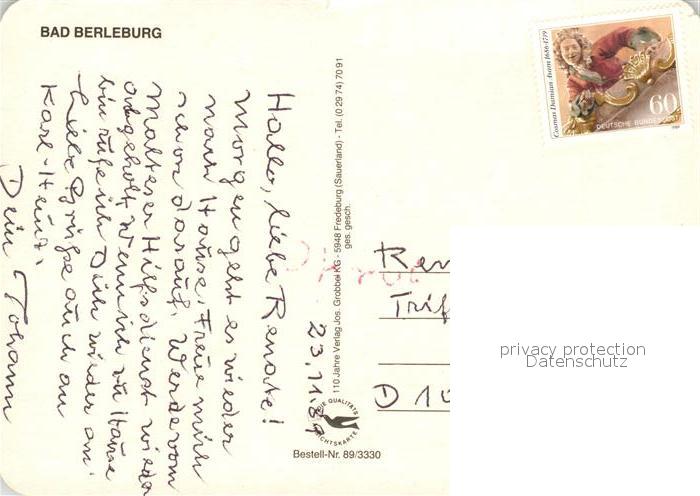 BAD BERLEBURG
Hallo, liebe Renate!
Morgen geht es wieder
nach Hause. Freue mich
schon darauf. Werde vom
Malteser Hilfsdienst wieder
abgeholt. Wenn ich zu Hause
bin rufe ich Dich wieder an.
Liebe Grüße auch an
Karl-Heinz.
Dein Johann
23.11.89
110 Jahre Verlag Jos. Grobbel KG - 5948 Fredeburg (Sauerland) - Tel. (0 29 74) 70 91
ges. gesch.
DIE QUALITÄTS
Bestell-Nr. 89/3330
Cosmas Damian Asam 1686-1739
60
DEUTSCHE BUNDESPOST
Ren
Trif
D 10
privacy protection
Datenschutz